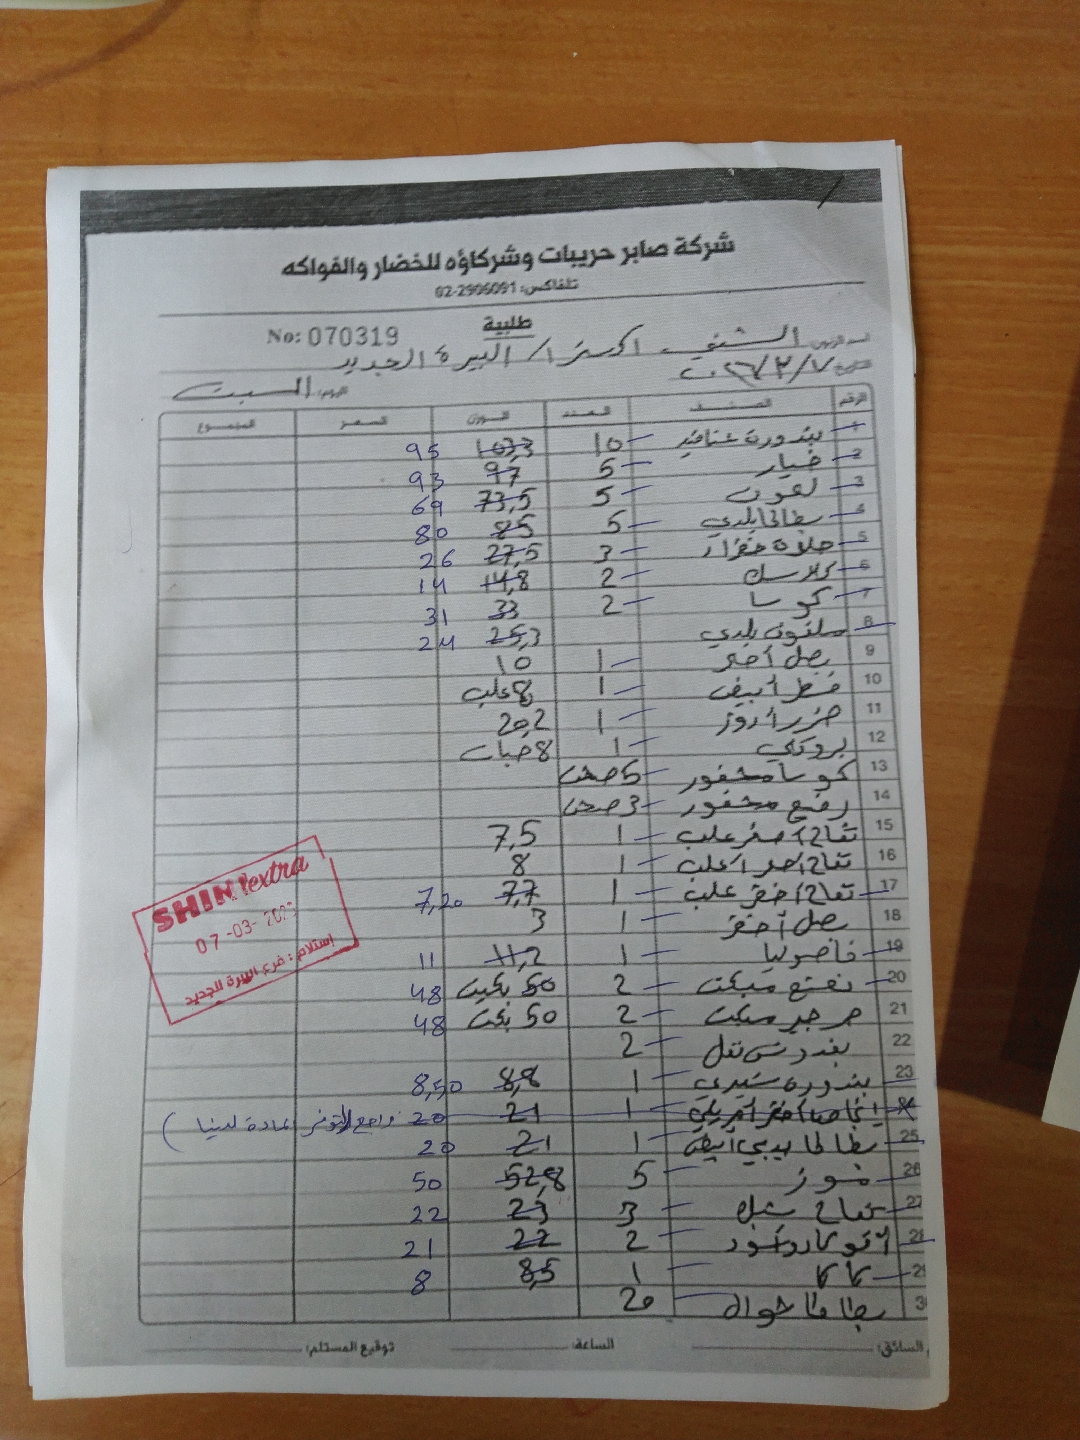 شركة صابر حريبات وشركاؤه للخضار والفواكه
تلفاكس: 02-2906091
طلبية
No: 070319
اسم الزبون: الشني اكسترا / البيرة الجديد
التاريخ: ٢٠٢٦/٣/٧
اليوم: السبت
الرقم الصنف العدد الوزن السعر المجموع
1 بندورة عناقيد 10 103,3 95
2 خيار 5 97 93
3 لمون 5 73,5 69
4 بطاطا بلدي 5 85 80
5 3 27,5 26
6 2 14,8 14
7 كوسا 2 33 31
8 بلدي 25,3 24
9 بصل أحمر 1 10
10 فطر أبيض 1 8 علب
11 جزر 1 20,2
12 بروكلي 1 8 حبات
13 كوسا محفور 5 صحن
14 محفور 3 صحن
15 تفاح أصفر علب 1 7,5
16 تفاح أحمر علب 1 8
17 تفاح أخضر علب 1 7,7 7,20
18 بصل أخضر 1 3
19 فاصوليا 1 11,2 11
20 نعنع مبكت 2 50 بكيت 48
21 جرجير مبكت 2 50 بكت 48
22 بقدونس 2
23 بندورة شيري 1 8,8 8,50
24 1 21 20
25 بطاطا 1 21 20
26 موز 5 52,8 50
27 تفاح 3 23 22
28 2 22 21
29 كاكا 1 8,5 8
30 بطاطا 20
SHINI extra
07-03-
إستلام: فرع البيرة الجديد
السائق: الساعة: توقيع المستلم: